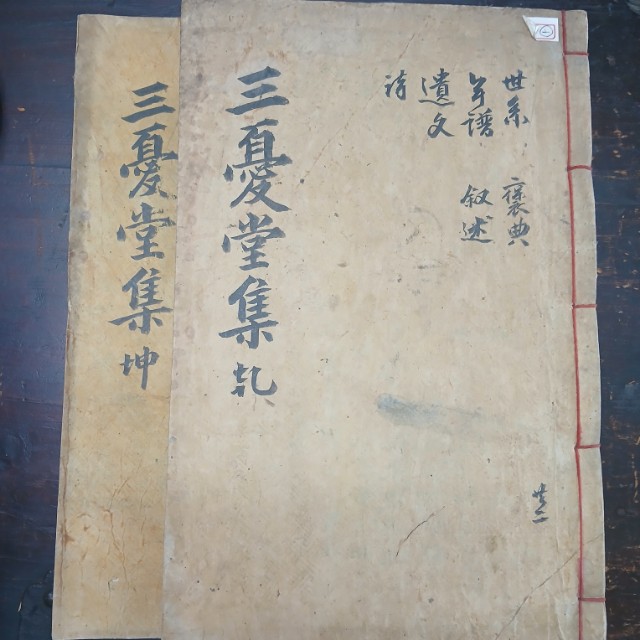 世系 褒典
年譜 叙述
遺文
詩
三憂堂集 乹
三憂堂集 坤
共二